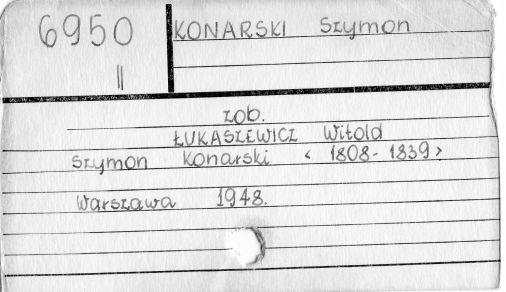 6950 KONARSKI Szymon
II
zob.
ŁUKASZEWICZ Witold
Szymon Konarski < 1808-1839>
Warszawa 1948.